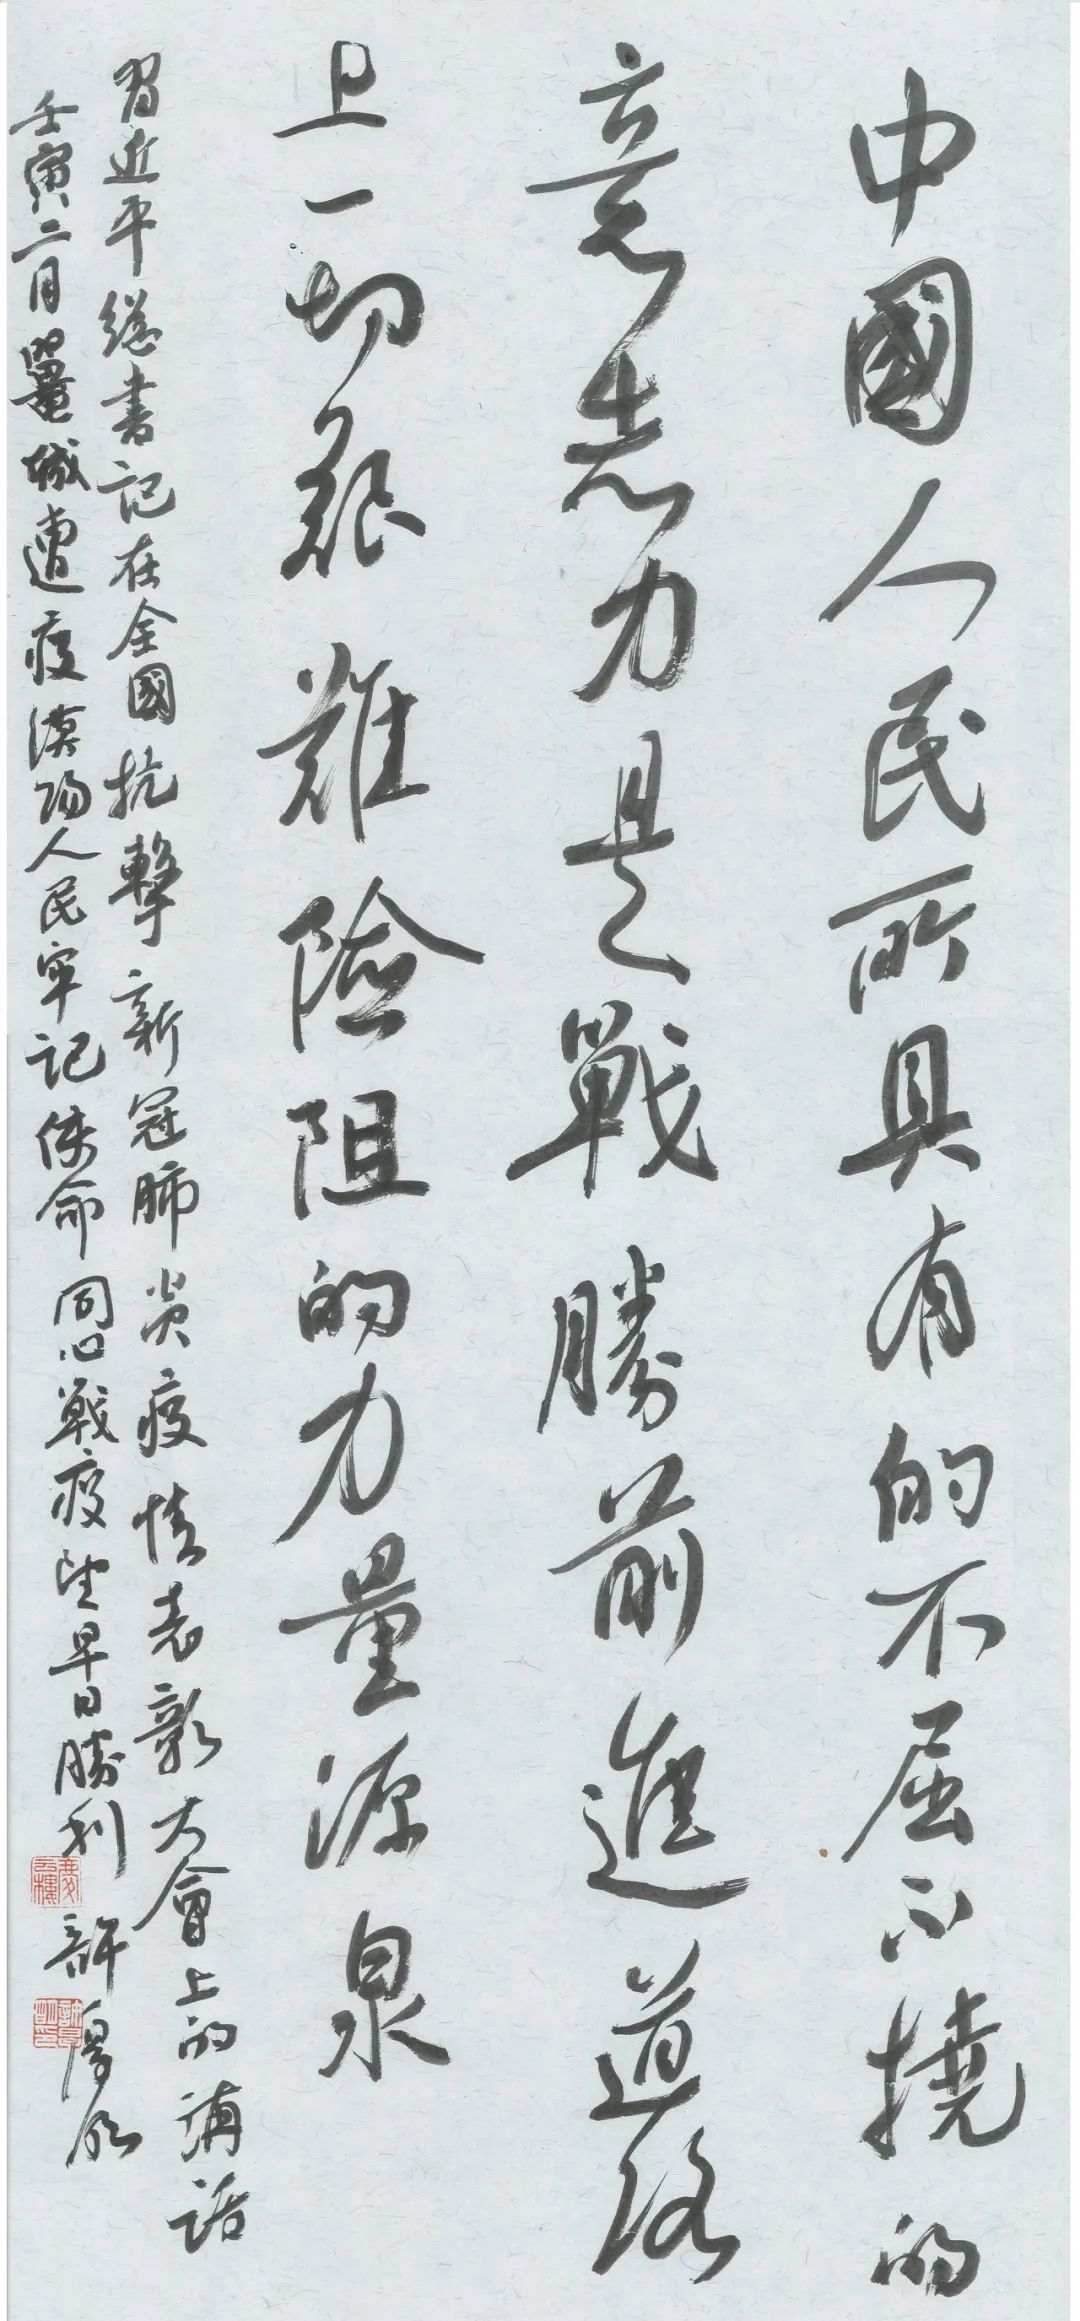 中國人民所具有的不屈不撓的
意志力是戰勝前進道路
上一切艱難險阻的力量源泉
習近平總書記在全國抗擊新冠肺炎疫情表彰大會上的講話
壬寅二月鼍城遭疫漠陽人民牢記使命同心戰疫望早日勝利
許